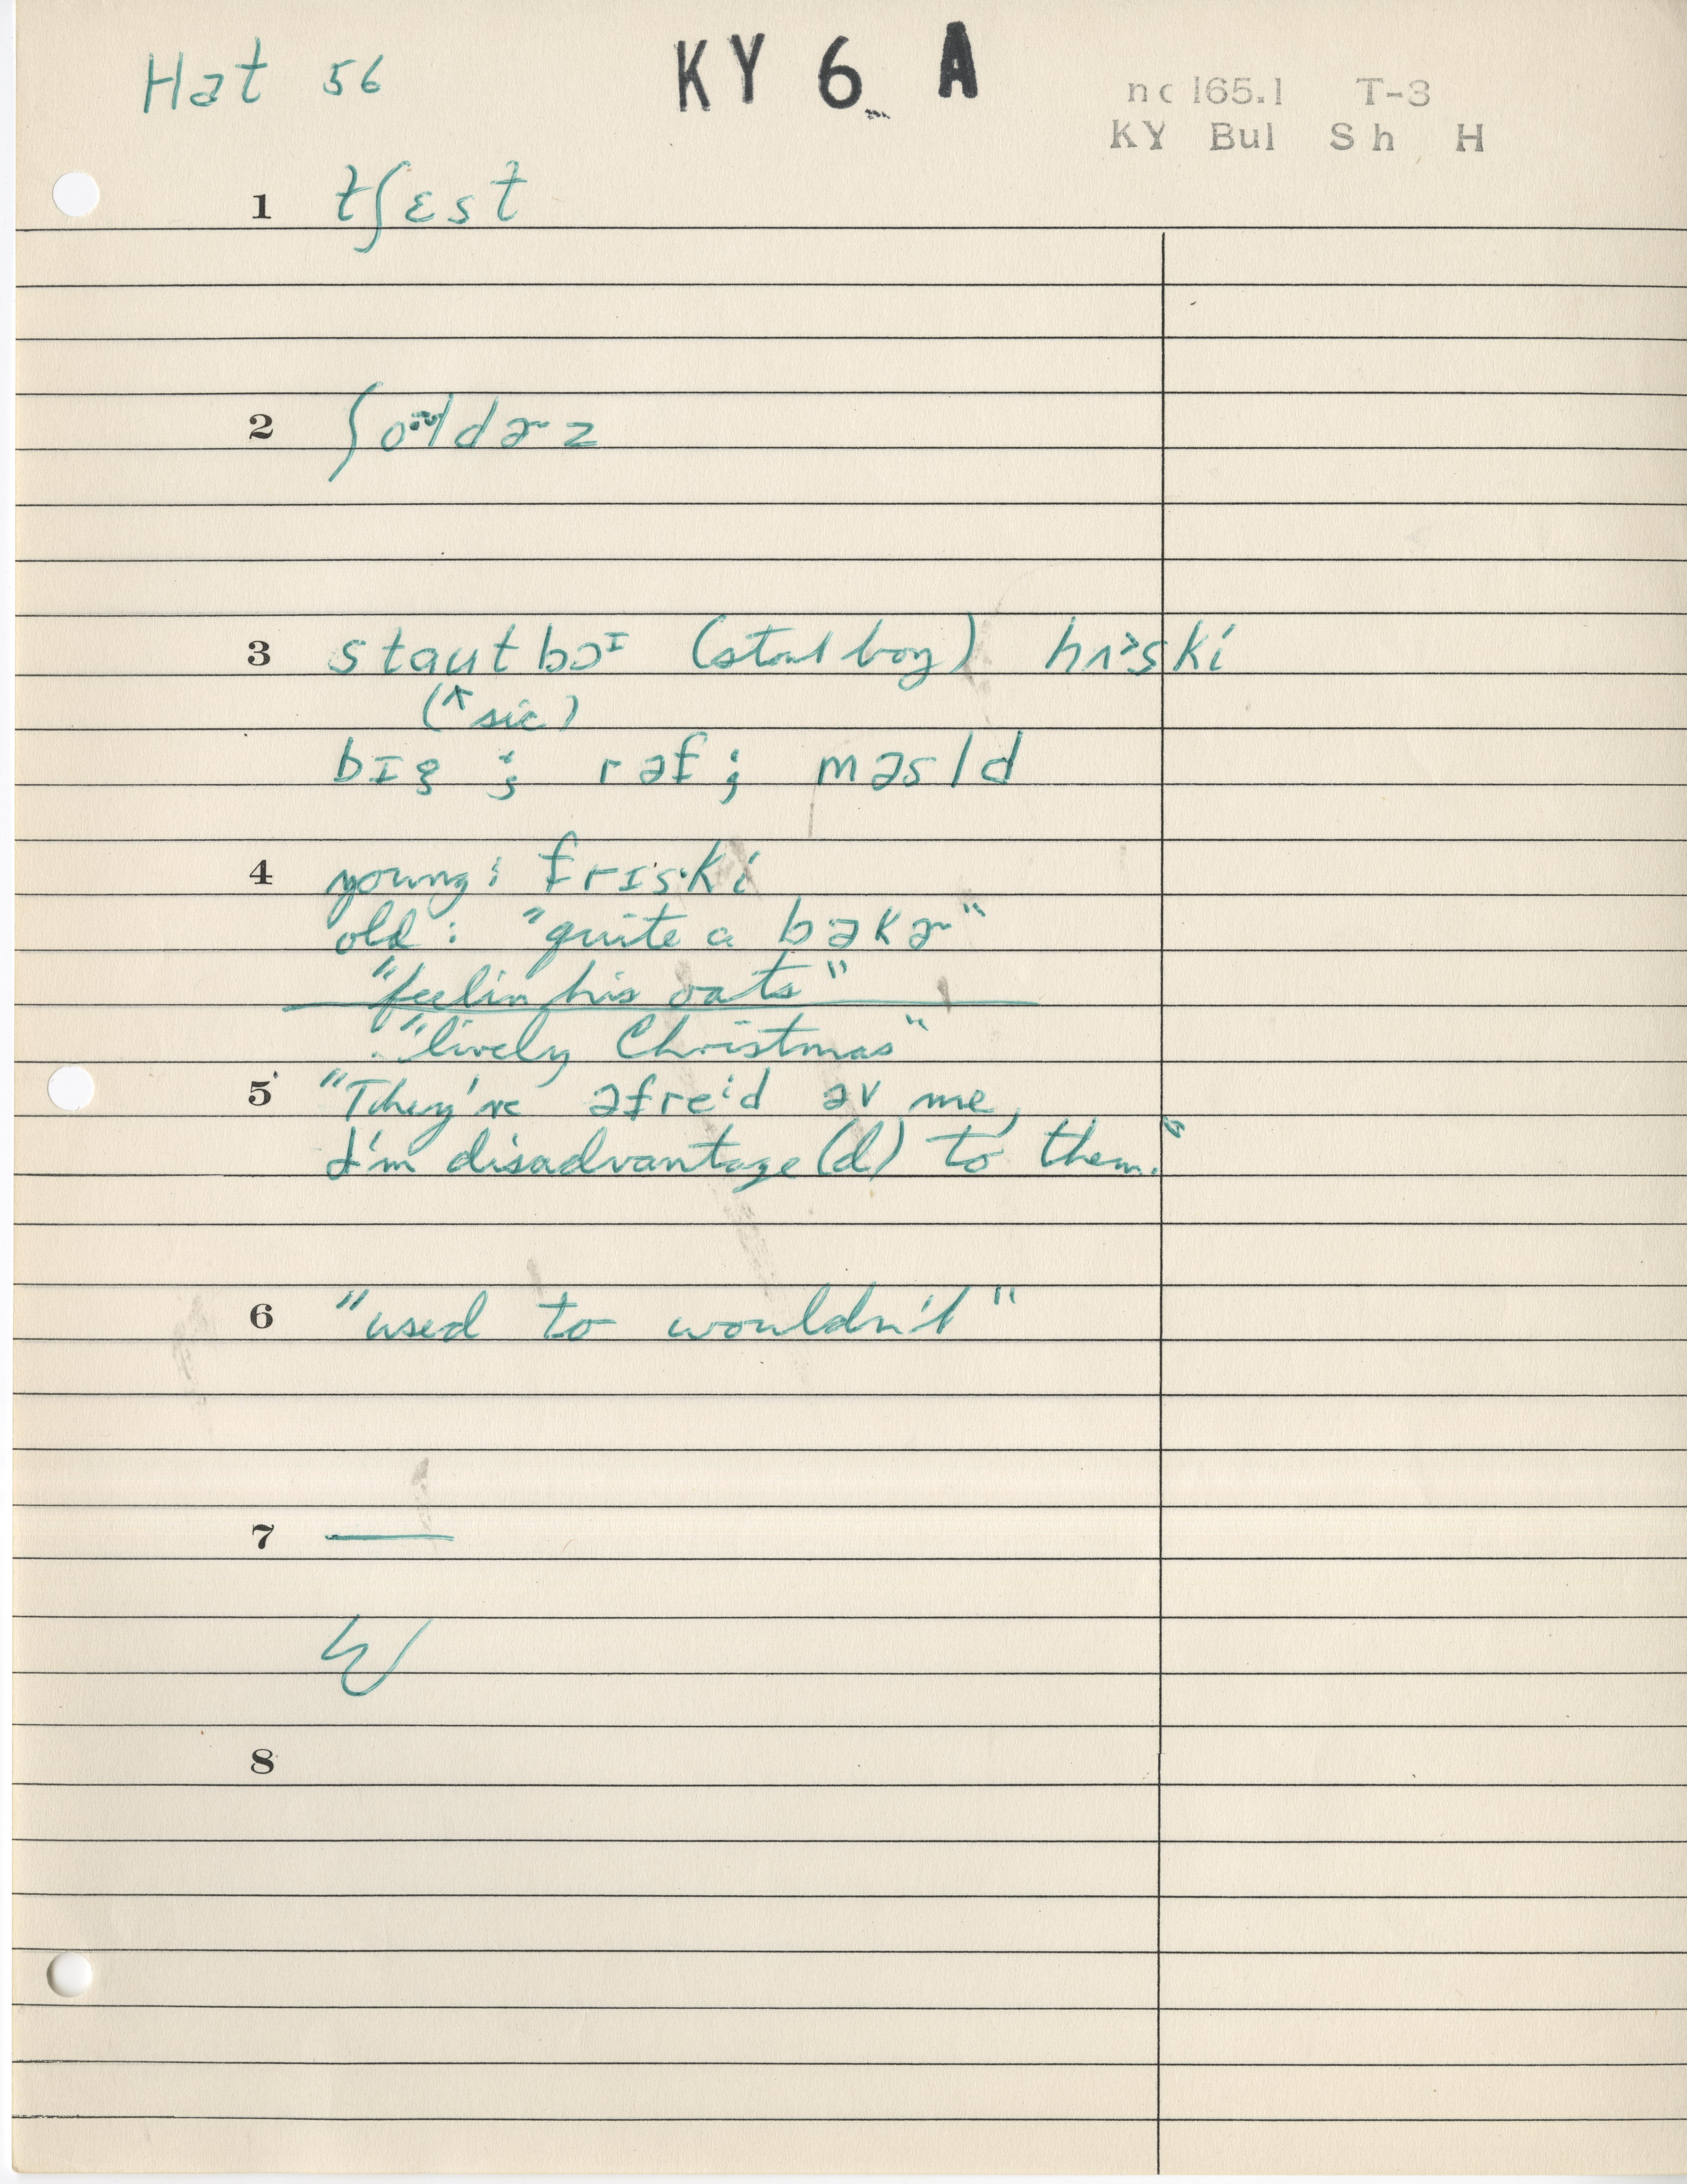 Hat 56 KY 6 A nc 165.1 T-3
KY Bul Sh H
1 tʃɛst
2 ʃoldɚz
3 staut bɔɪ (stout boy) hʌ>ski
(^ sic)
bɪg ; rəf; məsld
4 young: frɪski
old: "quite a bəkɚ"
"feelin his oats"
"lively Christmas"
5 "They're əfreɪd əv me,
I'm disadvantage(d) to them."
6 "used to wouldn't"
7 —
8